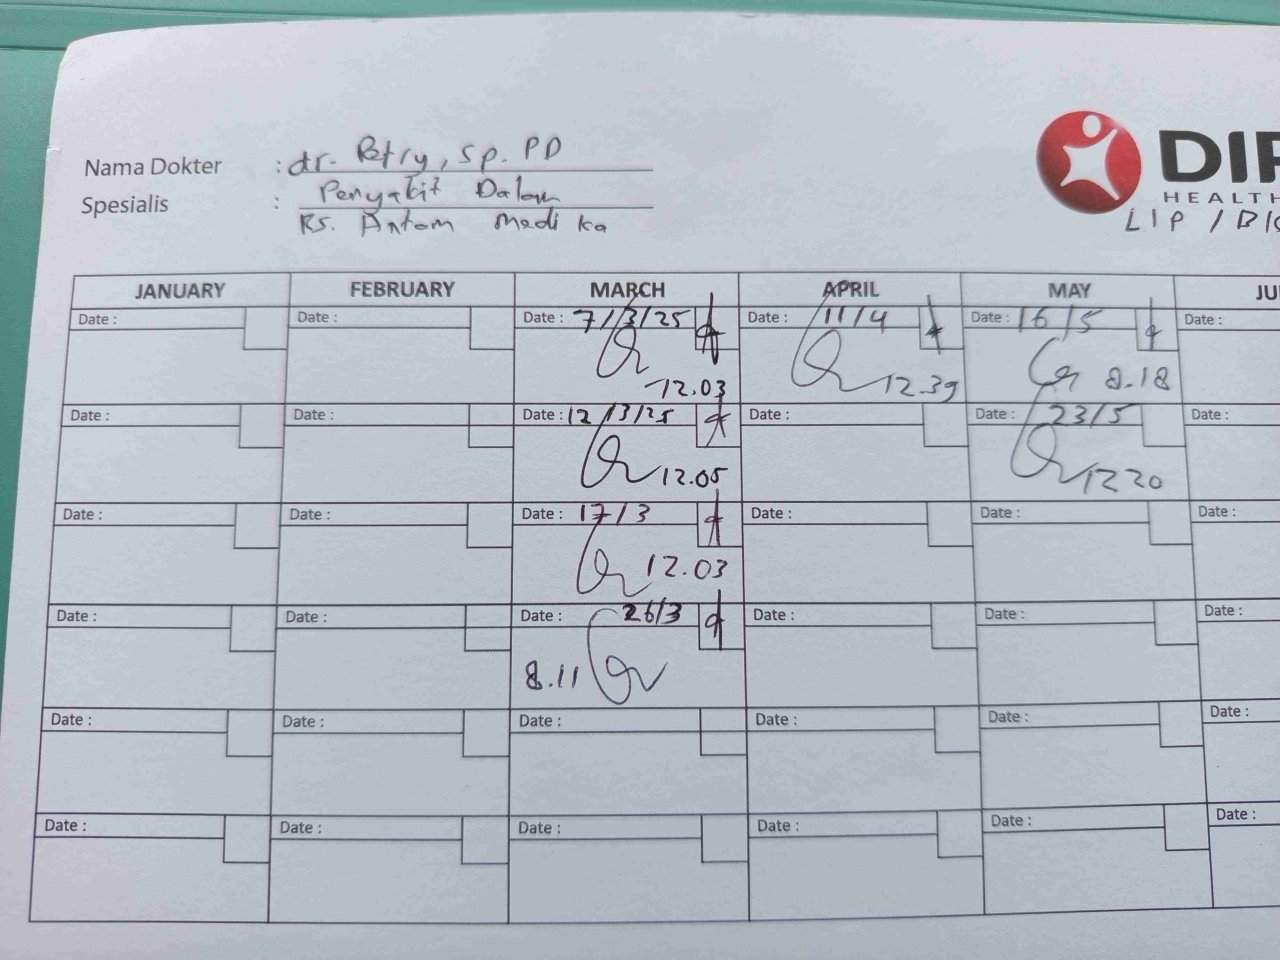 Nama Dokter : dr. Petry, Sp. PD
Spesialis : Penyakit Dalam
RS. Antam Medika
DIP
HEALTH
LIP / BIO
JANUARY FEBRUARY MARCH APRIL MAY JU
Date : Date : Date : 7/3/25 Date : 11/4 Date : 16/5 Date :
12.03 12.39 8.18
Date : Date : Date : 12/3/25 Date : Date : 23/5 Date :
12.05 1220
Date : Date : Date : 17/3 Date : Date : Date :
12.03
Date : Date : Date : 26/3 Date : Date : Date :
8.11
Date : Date : Date : Date : Date : Date :
Date : Date : Date : Date : Date : Date :